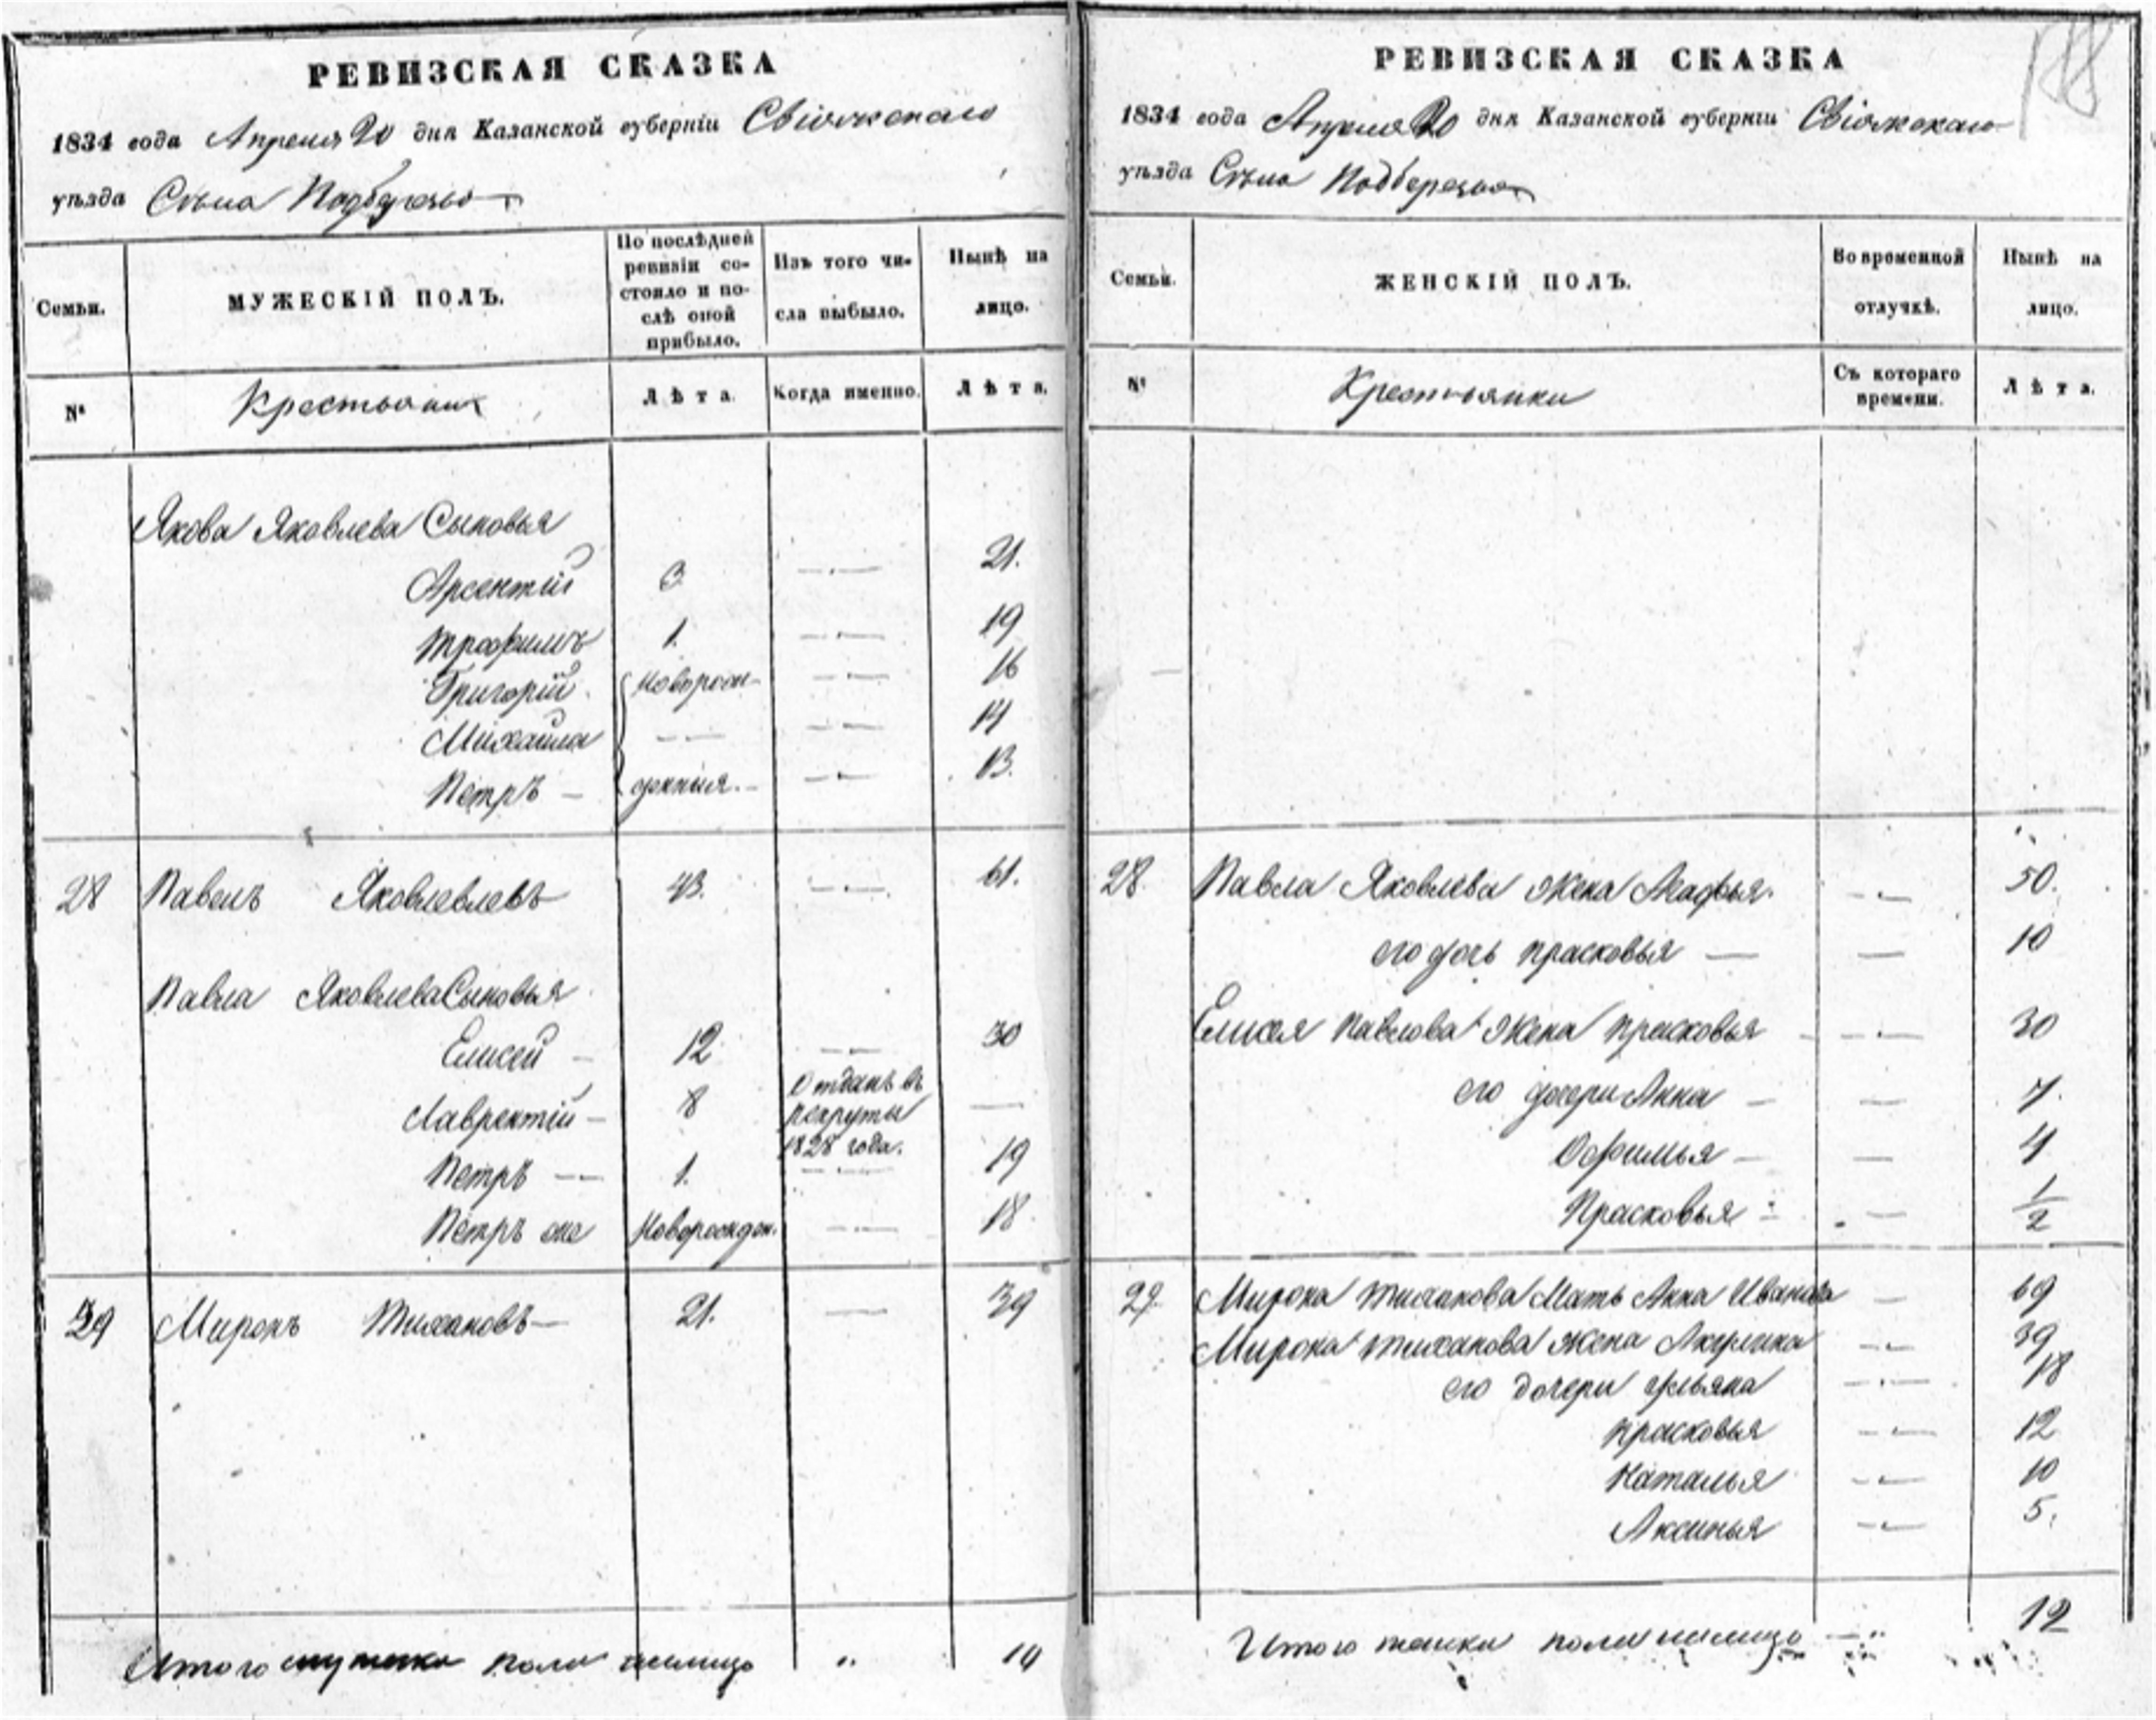 РЕВИЗСКАЯ СКАЗКА
1834 года Апреля 20 дня Казанской губернiи Свiяжскаго
уѣзда Села Подберезья
Семьи.
МУЖЕСКIЙ ПОЛЪ.
По послѣдней
ревизiи со-
стояло и по-
слѣ оной
прибыло.
Изъ того чи-
сла выбыло.
Нынѣ на
лицо.
№
Крестьяне
Лѣта.
Когда именно.
Лѣта.
Якова Яковлева Сыновья
Арсентiй 3 21.
Трофимъ 1. 19
Григорiй Новорож- 16
Михайла 14
Петръ денныя. 13.
28 Павелъ Яковлевлевъ 43. 61.
Павла Яковлева Сыновья
Елисей 12 30
Лаврентiй 8 Отданъ въ
рекруты
1828 года.
Петръ 1. 19
Петръ же Новорожден. 18
29 Миронъ Тихановъ 21. 39
Итого мужска пола налицо 14
РЕВИЗСКАЯ СКАЗКА
1834 года Апреля 20 дня Казанской губернiи Свiяжскаго
уѣзда Села Подберезья
Семьи.
ЖЕНСКIЙ ПОЛЪ.
Во временной
отлучкѣ.
Нынѣ на
лицо.
№
Крестьянки
Съ котораго
времени.
Лѣта.
28. Павла Яковлева Жена Агафья. 50.
его дочь Прасковья 10
Елисея Павлова Жена Прасковья 30
его дочери Анна 7.
Офимья 4
Прасковья 1/2
29. Мирона Тиханова Мать Анна Иванова 69
Мирона Тиханова Жена Акулина 39
его дочери Ульяна 18
Прасковья 12
Наталья 10
Аксинья 5.
Итого женска пола налицо 12